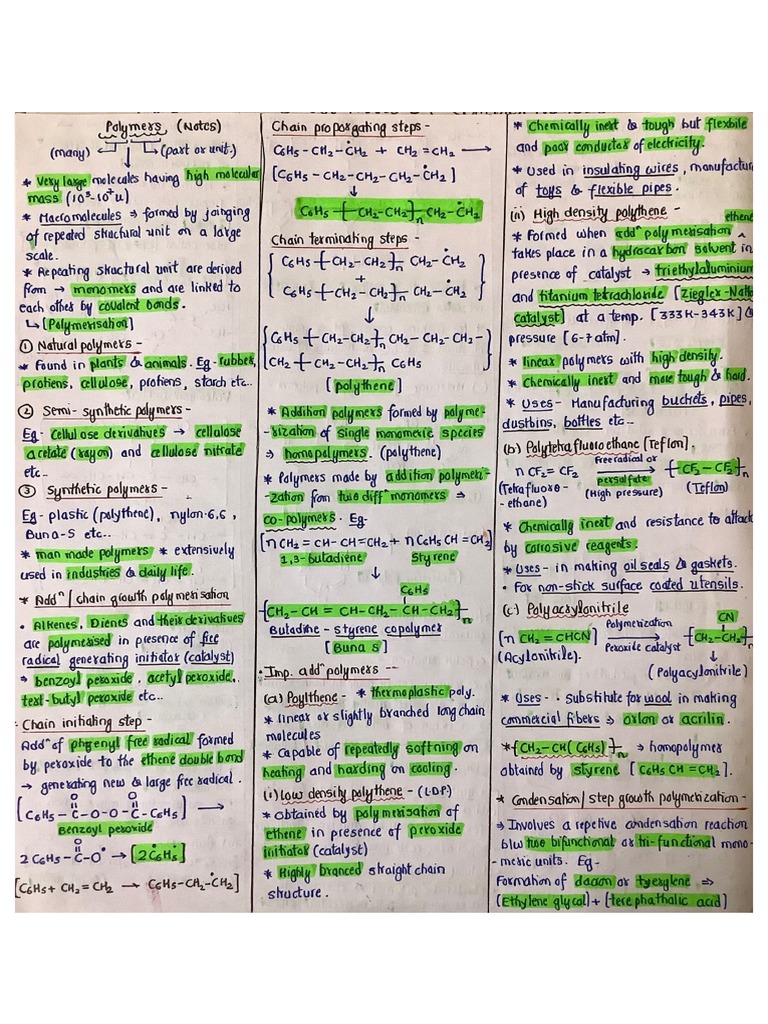 Polymers (Notes)
(many) (part or unit.)
* Very large molecules having high molecular
mass (10³-10⁷u)
* Macromolecules ⇒ formed by joinging
of repeated structural unit on a large
scale.
* Repeating structural unit are derived
from → monomers and are linked to
each other by covalent bonds.
↳ [Polymerisation]
① Natural polymers -
* Found in plants & animals. Eg- rubber,
protiens, cellulose, protiens, starch etc..
② Semi-synthetic polymers -
Eg- cellulose derivatives → cellulose
acetate (rayon) and cellulose nitrate
etc..
③ Synthetic polymers -
Eg - plastic (polythene), nylon-6,6,
Buna-S etc..
* man made polymers * extensively
used in industries & daily life.
* Addⁿ / chain growth polymerisation
• Alkenes, Dienes and their derivatives
are polymerised in presence of free
radical generating initiator (catalyst)
⇒ benzoyl peroxide, acetyl peroxide,
tert-butyl peroxide etc..
Chain initiating step -
Addⁿ of phenyl free radical formed
by peroxide to the ethene double bond
→ generating new & large free radical.
O O
[C₆H₅ - C - O - O - C - C₆H₅] →
Benzoyl peroxide
O
2 C₆H₅ - C - O• → [2 Ċ₆H₅]
[C₆H₅ + CH₂ = CH₂ → C₆H₅ - CH₂ - ĊH₂]
Chain proporgating steps -
C₆H₅ - CH₂ - ĊH₂ + CH₂ = CH₂ →
[C₆H₅ - CH₂ - CH₂ - CH₂ - ĊH₂]
↓
C₆H₅ -[CH₂ - CH₂]ₙ CH₂ - ĊH₂
Chain terminating steps -
C₆H₅ -[CH₂ - CH₂]ₙ CH₂ - ĊH₂
+
C₆H₅ -[CH₂ - CH₂]ₙ CH₂ - ĊH₂
↓
C₆H₅ -[CH₂ - CH₂]ₙ CH₂ - CH₂ - CH₂ -
CH₂ -[CH₂ - CH₂]ₙ C₆H₅
[polythene]
* Addition polymers formed by polyme-
-rization of single monomeric species
⇒ homopolymers. (polythene)
* Polymers made by addition polymeri-
-zation from two diffⁿ monomers ⇒
co-polymers. Eg-
[n CH₂ = CH - CH = CH₂ + n C₆H₅ CH = CH₂]
1,3-butadiene Styrene
↓
C₆H₅
-[CH₂ - CH = CH - CH₂ - CH - CH₂]ₙ
Butadine - styrene copolymer
[Buna S]
• Imp. addⁿ polymers --
(a) Poylthene - * thermoplastic poly.
* linear or slightly branched long chain
molecules
* Capable of repeatedly softning on
heating and harding on cooling.
(i) Low density polythene - (L.D.P)
* obtained by polymerisation of
ethene in presence of peroxide
initiator (catalyst)
* Highly branced straight chain
structure.
* Chemically inert & tough but flexbile
and poor conductor of electricity.
* Used in insulating wires, manufactur
of toys & flexible pipes.
(ii) High density polythene -
ethene
* Formed when addⁿ polymerisation ^
takes place in a hydrocarbon solvent in
presence of catalyst → triethylaluminium
and titanium tetrachloride [Ziegler-Natta
catalyst] at a temp. [333K-343K] &
pressure [6-7 atm].
* linear polymers with high density.
* Chemically inert and more tough & hard.
* Uses - Manufacturing buckets, pipes,
dustbins, bottles etc -
(b) Polytetrafluoroethane [Teflon].
n CF₂ = CF₂ Free radical or persulfate (High pressure) → -[CF₂ - CF₂]ₙ
(Tetrafluoro- -ethane) (Teflon)
* Chemically inert and resistance to attack
by corrosive reagents.
* Uses - in making oil seals & gaskets.
• For non-stick surface coated utensils.
(c) Polyacrylonitrile
[n CH₂ = CHCN] Polymerization Peroxide catalyst → -[CH₂ - CH₂]ₙ CN
(Acylonitrile). ↓
(Polyacylonitrile)
* Uses - - substitute for wool in making
commercial fibers ⇒ orlon or acrilin.
* -[CH₂ - CH(C₆H₅)]ₙ ⇒ homopolymer
obtained by styrene [C₆H₅ CH = CH₂].
* Condensation/step growth polymerization -
⇒ Involves a repetive condensation reaction
b/w two bifunctional or tri-functional mono-
-meric units. Eg-
Formation of dacron or tyerylene ⇒
[Ethylene glycol] + [tere phathalic acid]